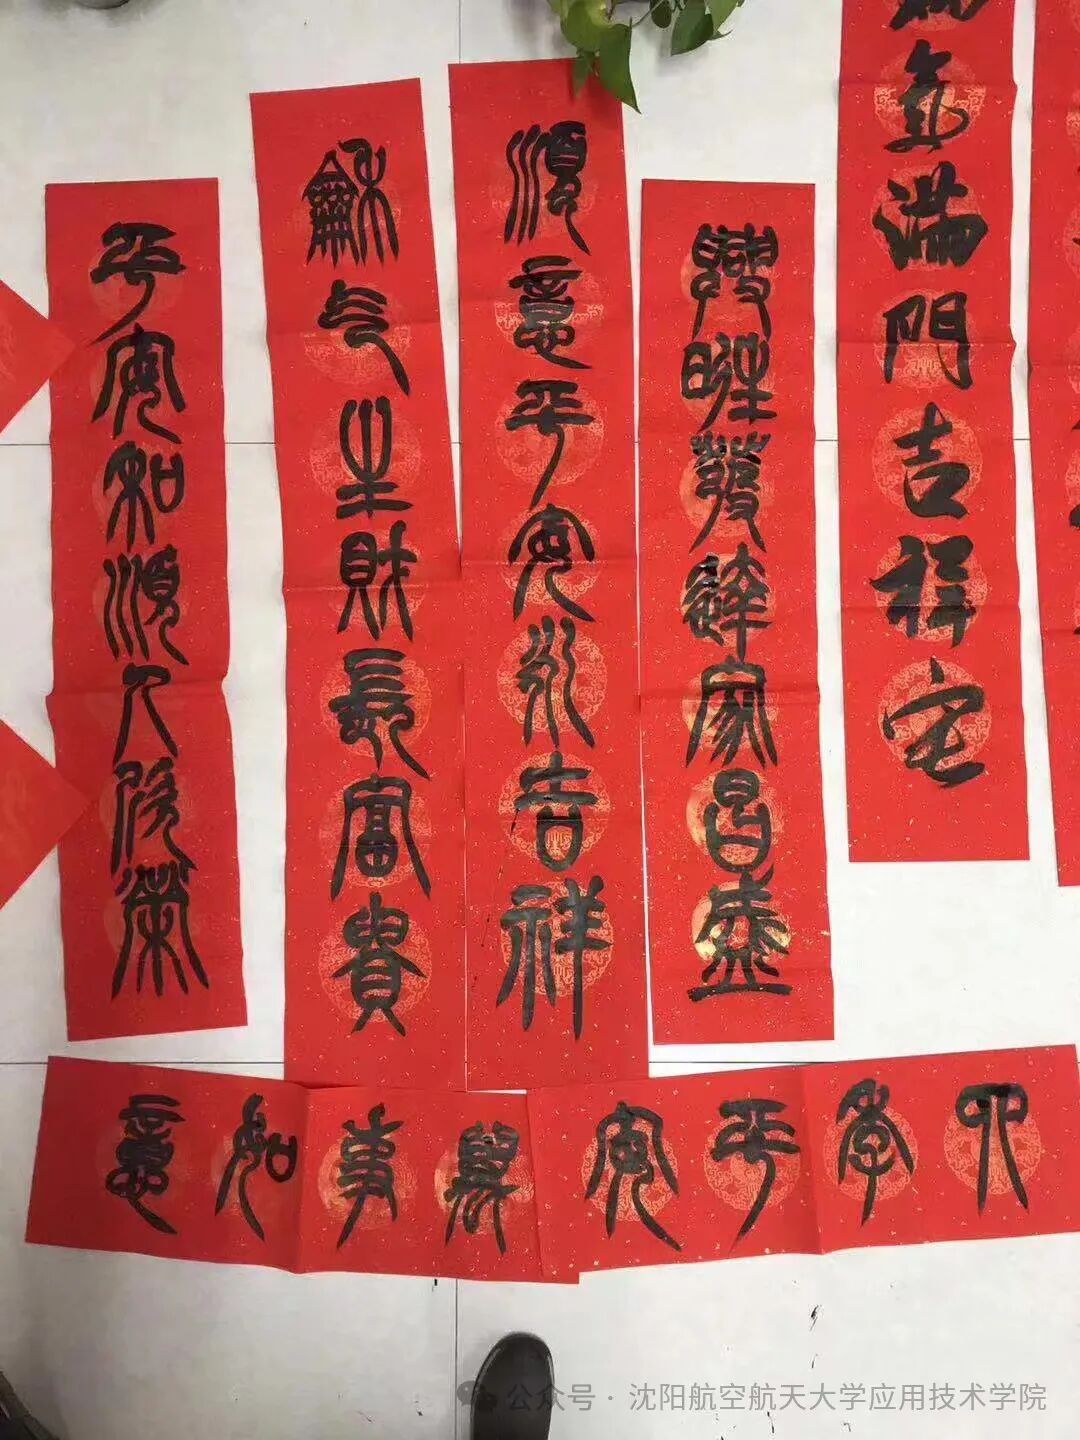 氣滿門吉祥宅
興旺發達家昌盛
順意平安永吉祥
龢气生財長富貴
平安和順人榮
四季平安
萬事如意
公众号·沈阳航空航天大学应用技术学院